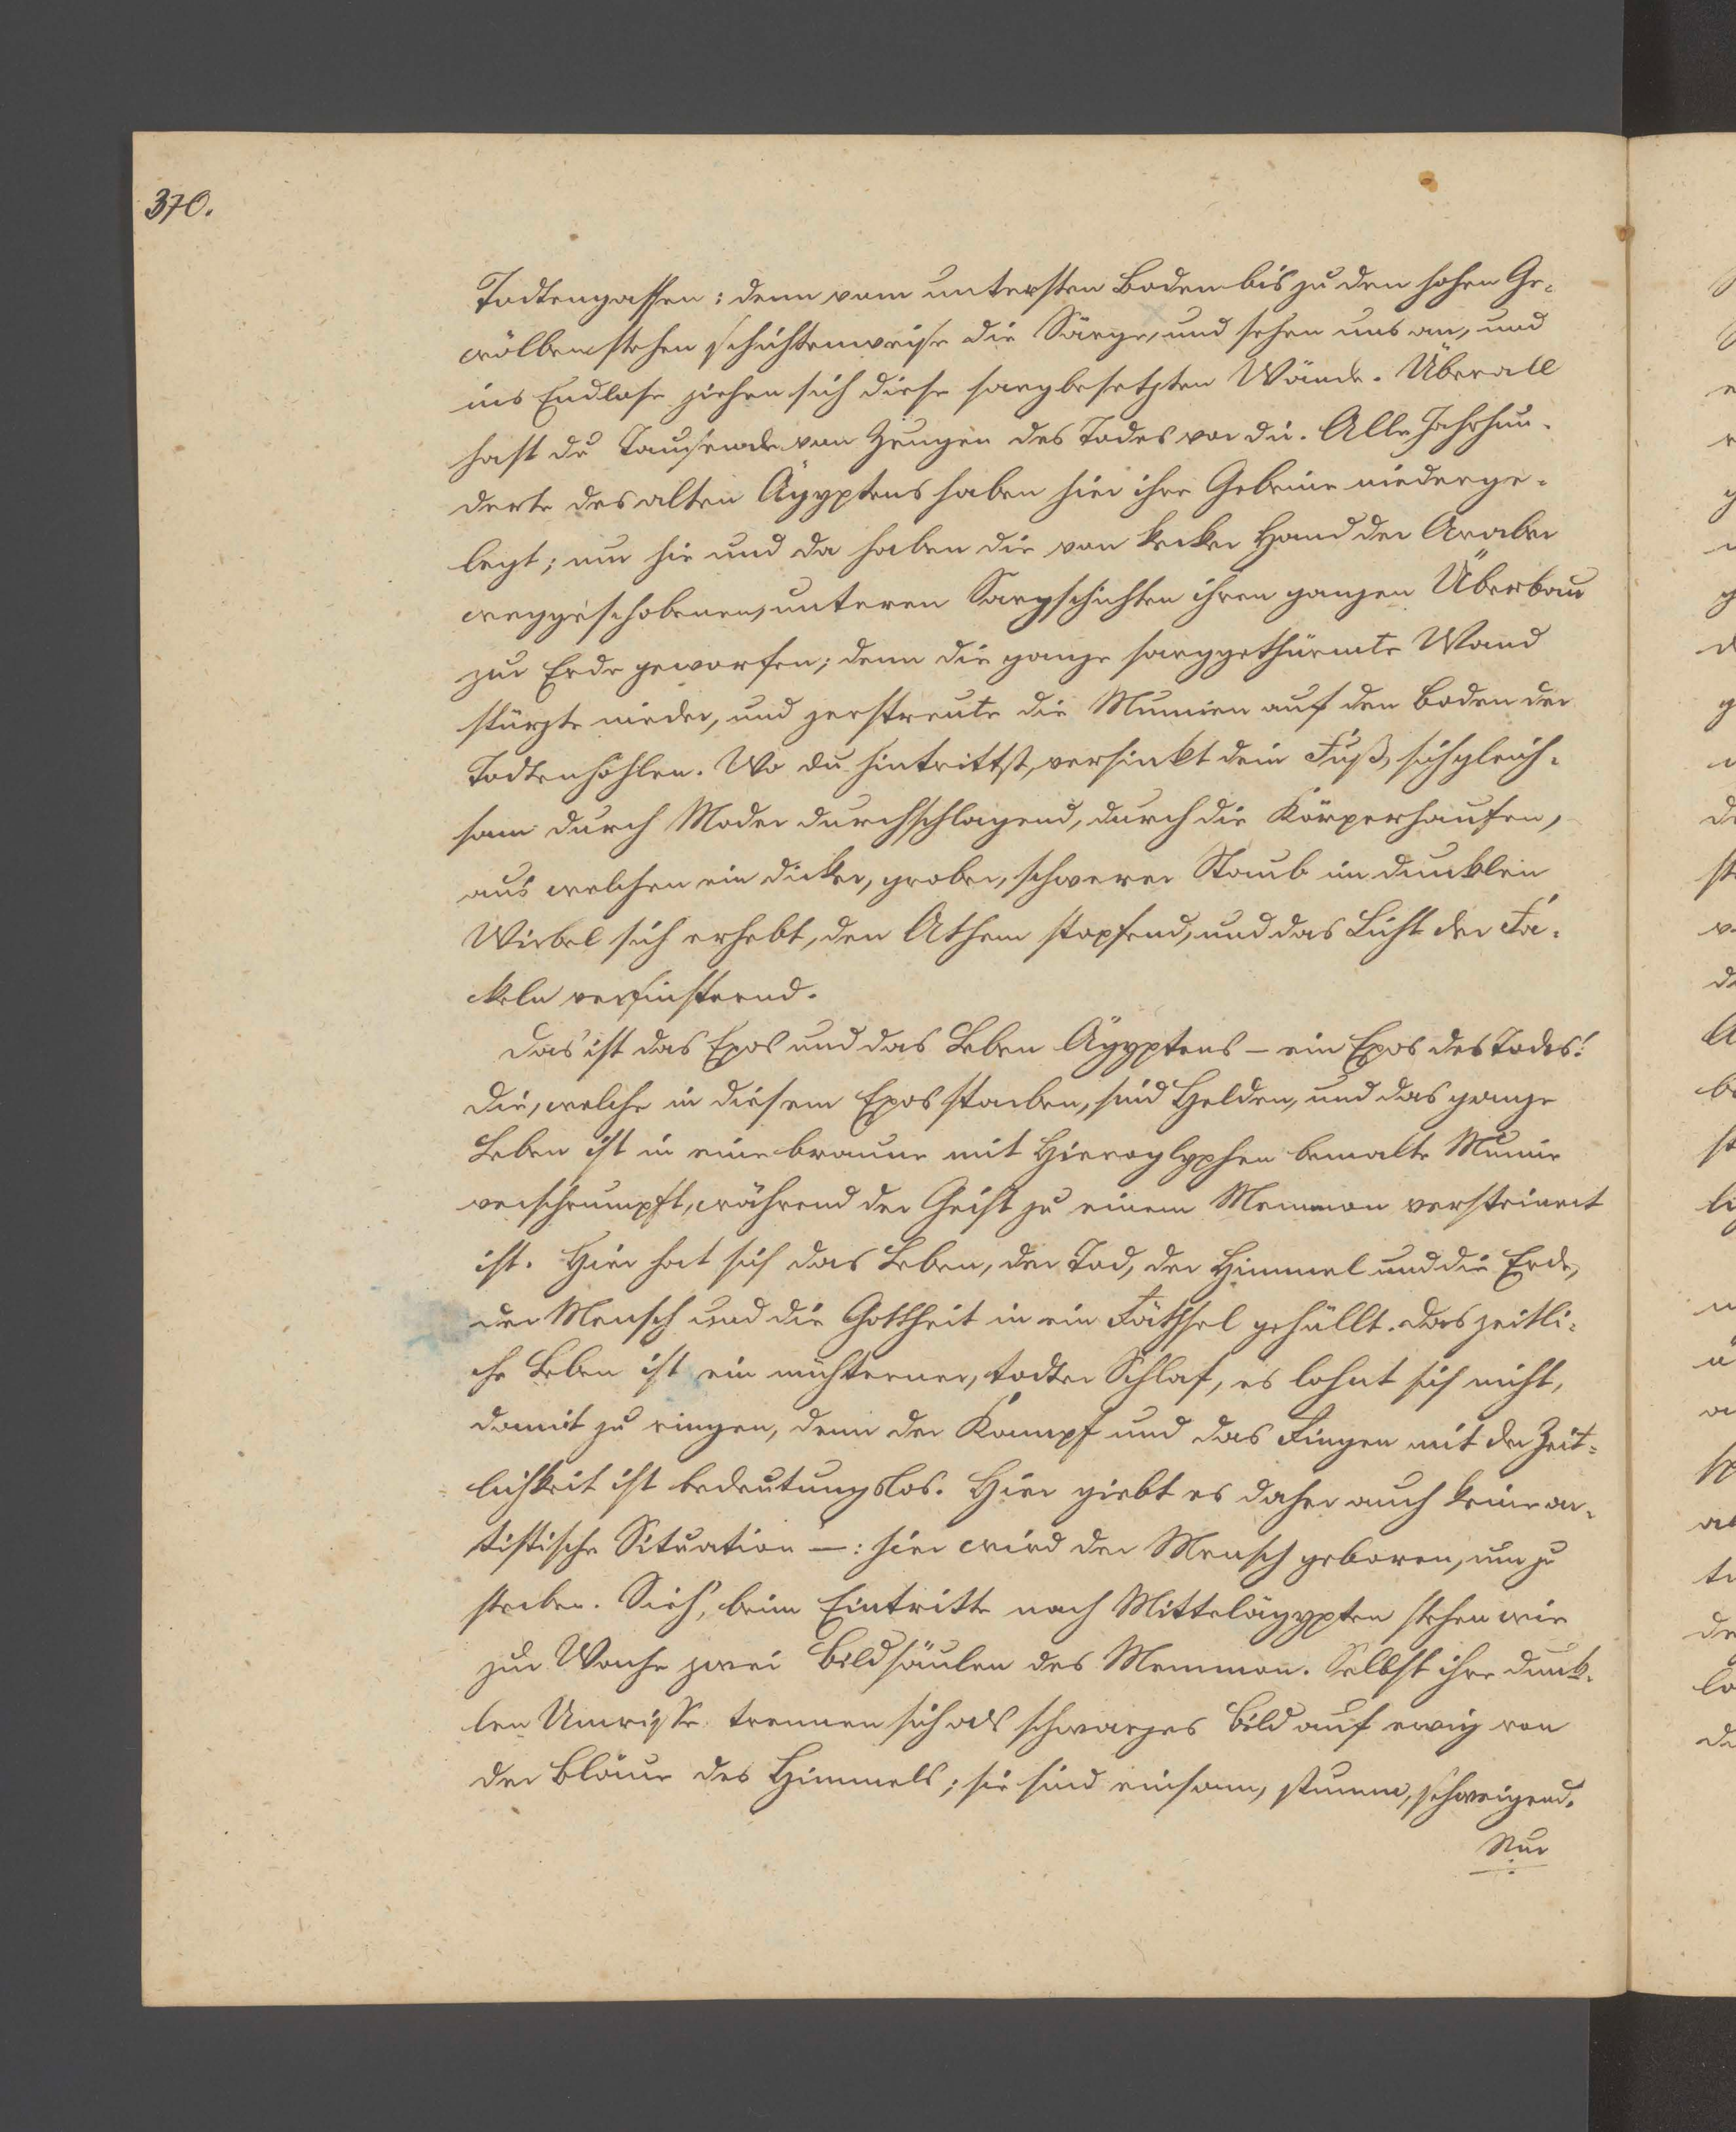 370.
Todtengassen: denn vom untersten Boden bis zu den hohen Ge-
wölben stehen schichtenweise die Särge, und sehen uns an, und
ins Endlose ziehen sich diese sargbesetzten Wände. Überall
hast du Tausende von Zeugen des Todes vor dir. Alle Jahrhun-
derte des alten Ägyptens haben hier ihre Gebeine niederge-
legt; nur hie und da haben die von kecker Hand der Araber
weggeschobenen, unteren Sargschichten ihren ganzen Überbau
zur Erde geworfen; denn die ganze sarggethürmte Wand
stürzte nieder, und zerstreute die Mumien auf den Boden der
Todtenhöhlen. Wo du hintrittst, versinkt dein Fuß, sich gleich-
sam durch Moder durchschlagend, durch die Körperhaufen,
aus welchen ein dicker, grober, schwerer Staub im dunklen
Wirbel sich erhebt, den Athem stopfend, und das Licht der Fa-
ckeln verfinsternd.
Das ist das Epos und das Leben Ägyptens – ein Epos des Todes!
Die, welche in diesem Epos starben, sind Helden, und das ganze
Leben ist in eine braune mit Hieroglyphen bemalte Mumie
verschrumpft, während der Geist zu einem Memnon versteinert
ist. Hier hat sich das Leben, der Tod, der Himmel und die Erde,
der Mensch und die Gottheit in ein Räthsel gehüllt. Das zeitli-
che Leben ist ein nüchterner, todter Schlaf, es lohnt sich nicht,
damit zu ringen, denn der Kampf und das Ringen mit der Zeit-
lichkeit ist bedeutungslos. Hier giebt es daher auch keine ar-
tistische Situation –: hier wird der Mensch geboren, um zu
sterben. Sieh', beim Eintritte nach Mittelägypten stehen wie
zur Wache zwei Bildsäulen des Memnon. Selbst ihre dunk-
len Umrisse trennen sich als schwarzes Bild auf ewig von
der Bläue des Himmels; sie sind einsam, stumm, schweigend.
Nur